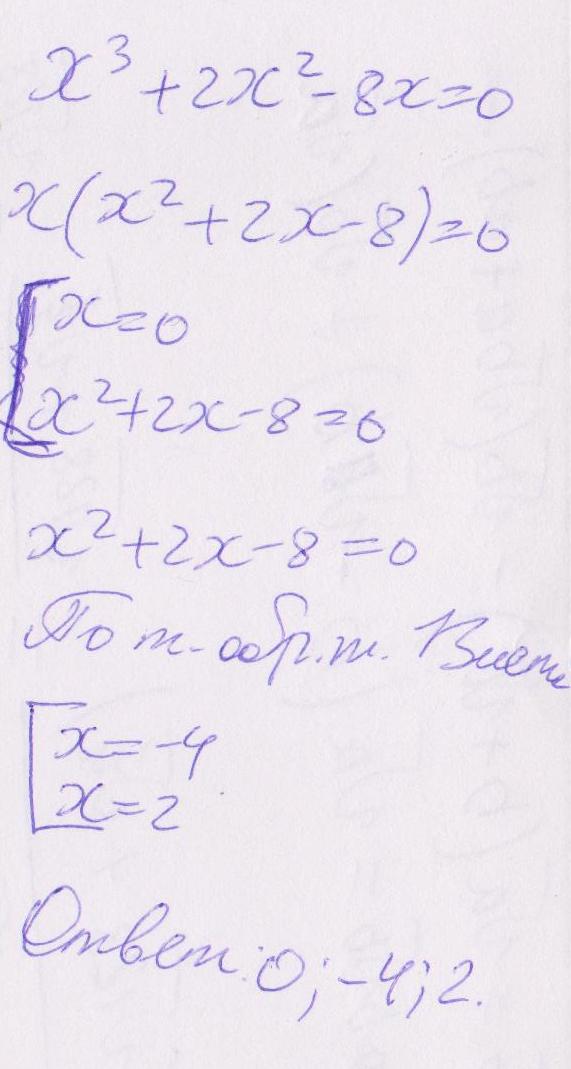 x³+2x²-8x=0
x(x²+2x-8)=0
[x=0
x²+2x-8=0
x²+2x-8=0
По т. обр. т. Виета
[x=-4
x=2
Ответ: 0; -4; 2.